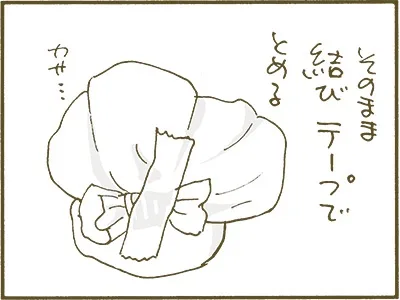 そのまま
結び テープで
とめる
カサ…